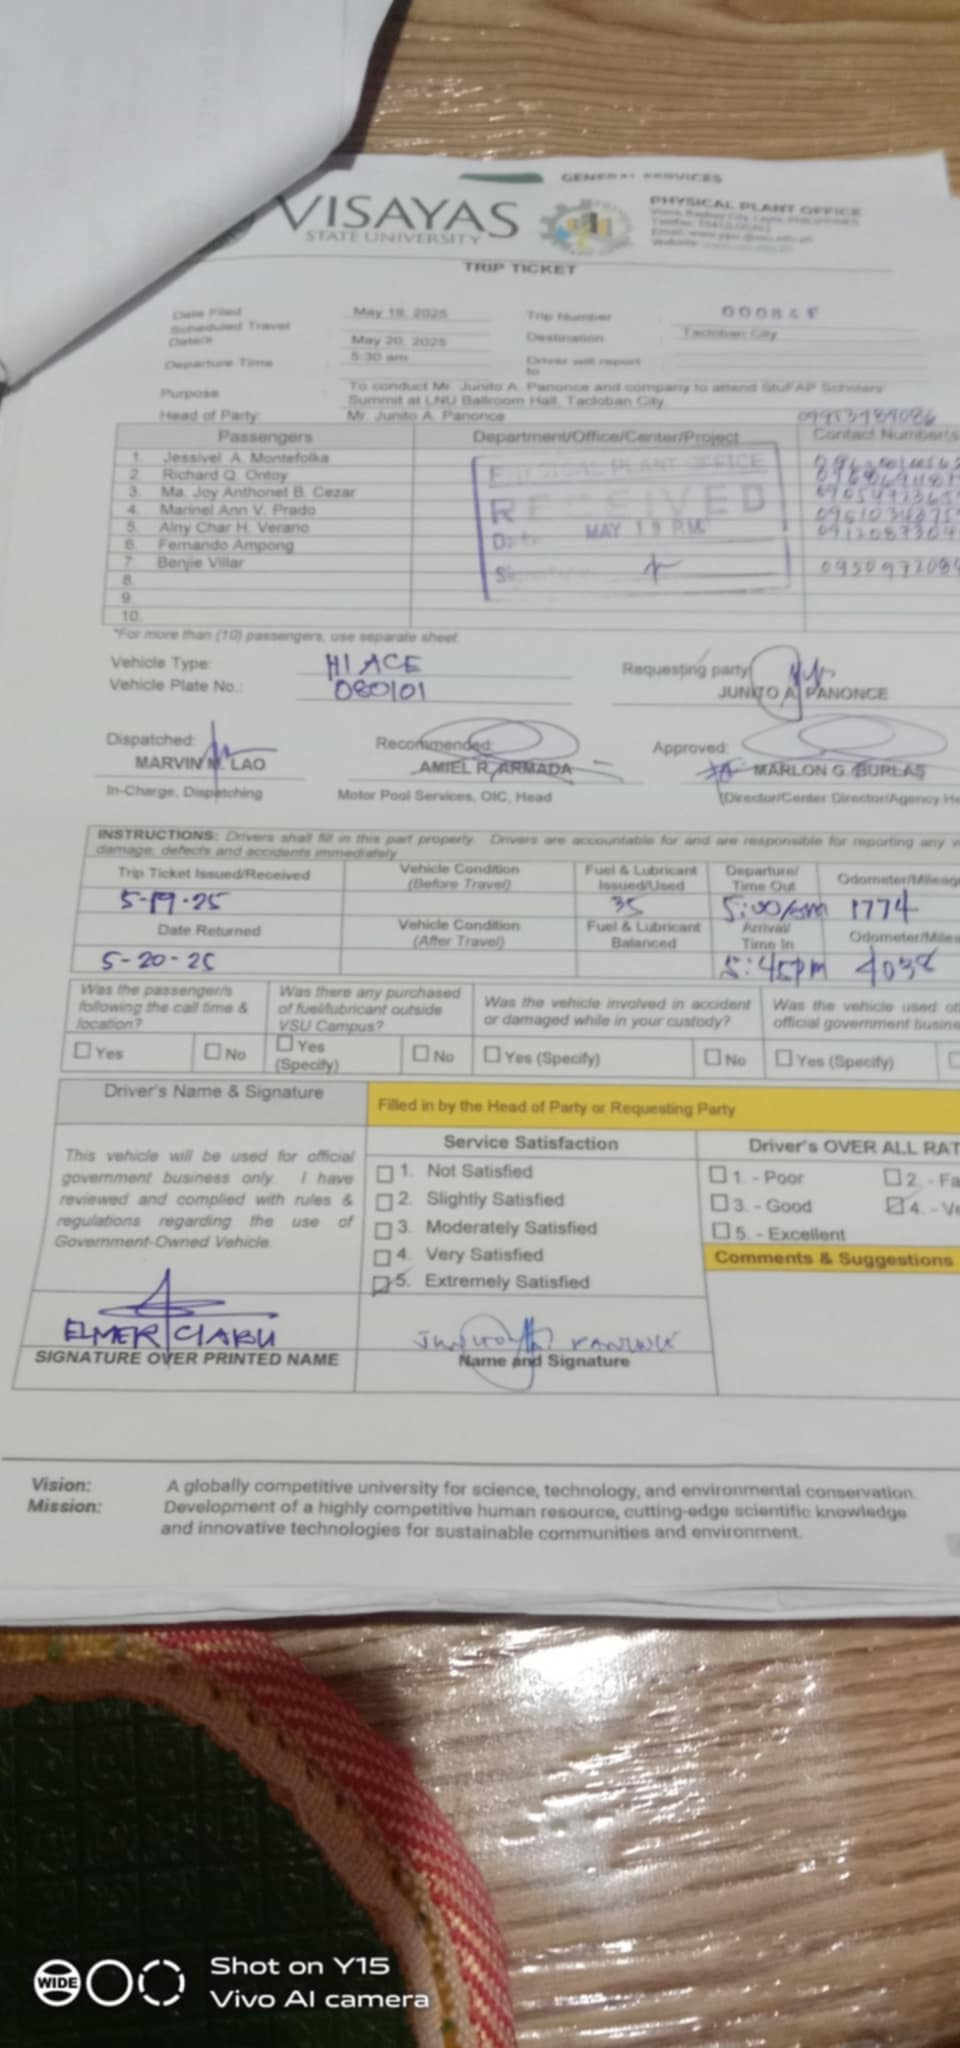 GENERAL SERVICES
VISAYAS
STATE UNIVERSITY
PHYSICAL PLANT OFFICE
TRIP TICKET
Date Filed : May 19, 2025 Trip Number : 
Scheduled Travel Date/s : May 20, 2025 Destination : Tacloban City
Departure Time : 5:30 am Driver will report to :
Purpose : To conduct Mr. Junito A. Panonce and company to attend StuFAP Scholars' Summit at LNU Ballroom Hall, Tacloban City.
Head of Party: Mr. Junito A. Panonce
Passengers Department/Office/Center/Project Contact Number/s
1. Jessivel A. Montefolka
2. Richard Q. Ontoy
3. Ma. Joy Anthonet B. Cezar
4. Marinel Ann V. Prado
5. Alny Char H. Verano
6. Fernando Ampong
7. Benjie Villar
8.
9.
10.
PHYSICAL PLANT OFFICE
RECEIVED
Date MAY 19 P.M.
*For more than (10) passengers, use separate sheet.
Vehicle Type: HI ACE Requesting party:
Vehicle Plate No.: 080101 JUNITO A. PANONCE
Dispatched: Recommended: Approved:
MARVIN M. LAO AMIEL R. ARMADA MARLON G. BURLAS
In-Charge, Dispatching Motor Pool Services, OIC, Head (Director/Center Director/Agency He
INSTRUCTIONS: Drivers shall fill in this part properly. Drivers are accountable for and are responsible for reporting any
damage, defects and accidents immediately
Trip Ticket Issued/Received Vehicle Condition (Before Travel) Fuel & Lubricant Issued/Used Departure/ Time Out Odometer/Mileag
5-19-25 35 5:00/am 1774
Date Returned Vehicle Condition (After Travel) Fuel & Lubricant Balanced Arrival/ Time In Odometer/Miles
5-20-25 5:45pm 4038
Was the passenger/s following the call time & location? Was there any purchased of fuel/lubricant outside VSU Campus? Was the vehicle involved in accident or damaged while in your custody? Was the vehicle used ot official government busine
Yes No Yes (Specify) No Yes (Specify) No Yes (Specify)
Driver's Name & Signature Filled in by the Head of Party or Requesting Party
Service Satisfaction Driver's OVER ALL RAT
This vehicle will be used for official
government business only. I have
reviewed and complied with rules &
regulations regarding the use of
Government-Owned Vehicle.
1. Not Satisfied
2. Slightly Satisfied
3. Moderately Satisfied
4. Very Satisfied
5. Extremely Satisfied
1. - Poor 2. - Fa
3. - Good 4. - Ve
5. - Excellent
Comments & Suggestions
ELMER CIABU
SIGNATURE OVER PRINTED NAME Name and Signature
Vision: A globally competitive university for science, technology, and environmental conservation.
Mission: Development of a highly competitive human resource, cutting-edge scientific knowledge
and innovative technologies for sustainable communities and environment.
WIDE
Shot on Y15
Vivo AI camera